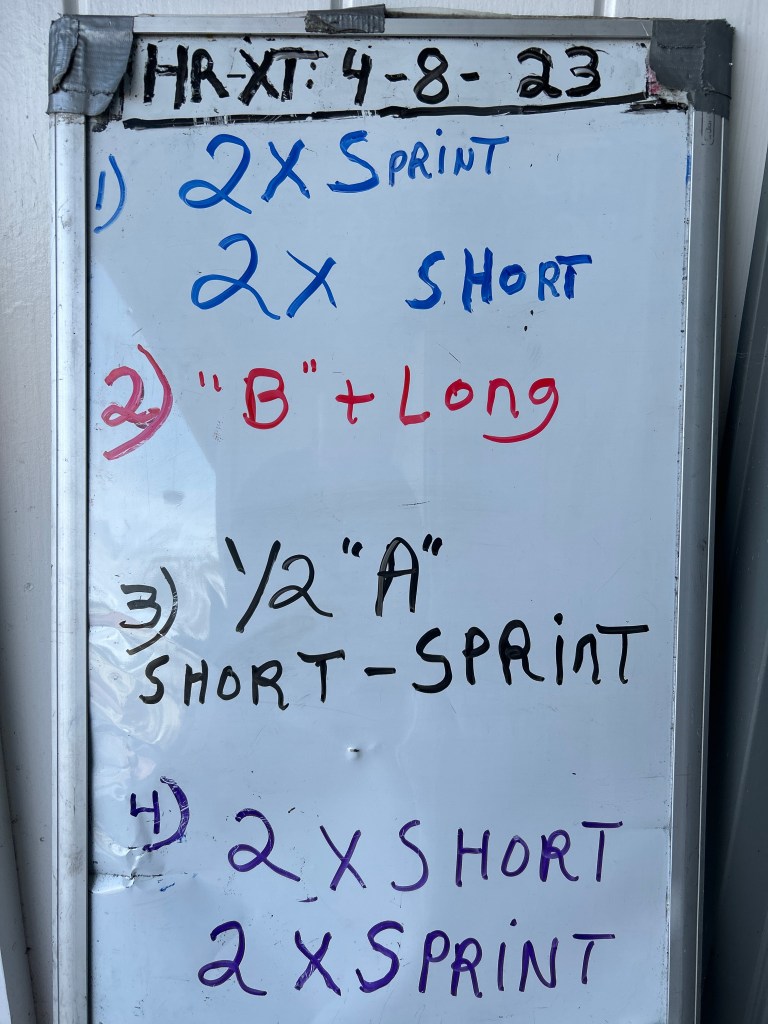 HR-XT: 4-8-23
1) 2X SPRiNT
2X SHORT
2) "B" + Long
3) 1/2 "A"
SHORT-SPRinT
4) 2 X SHORT
2 X SPRiNT